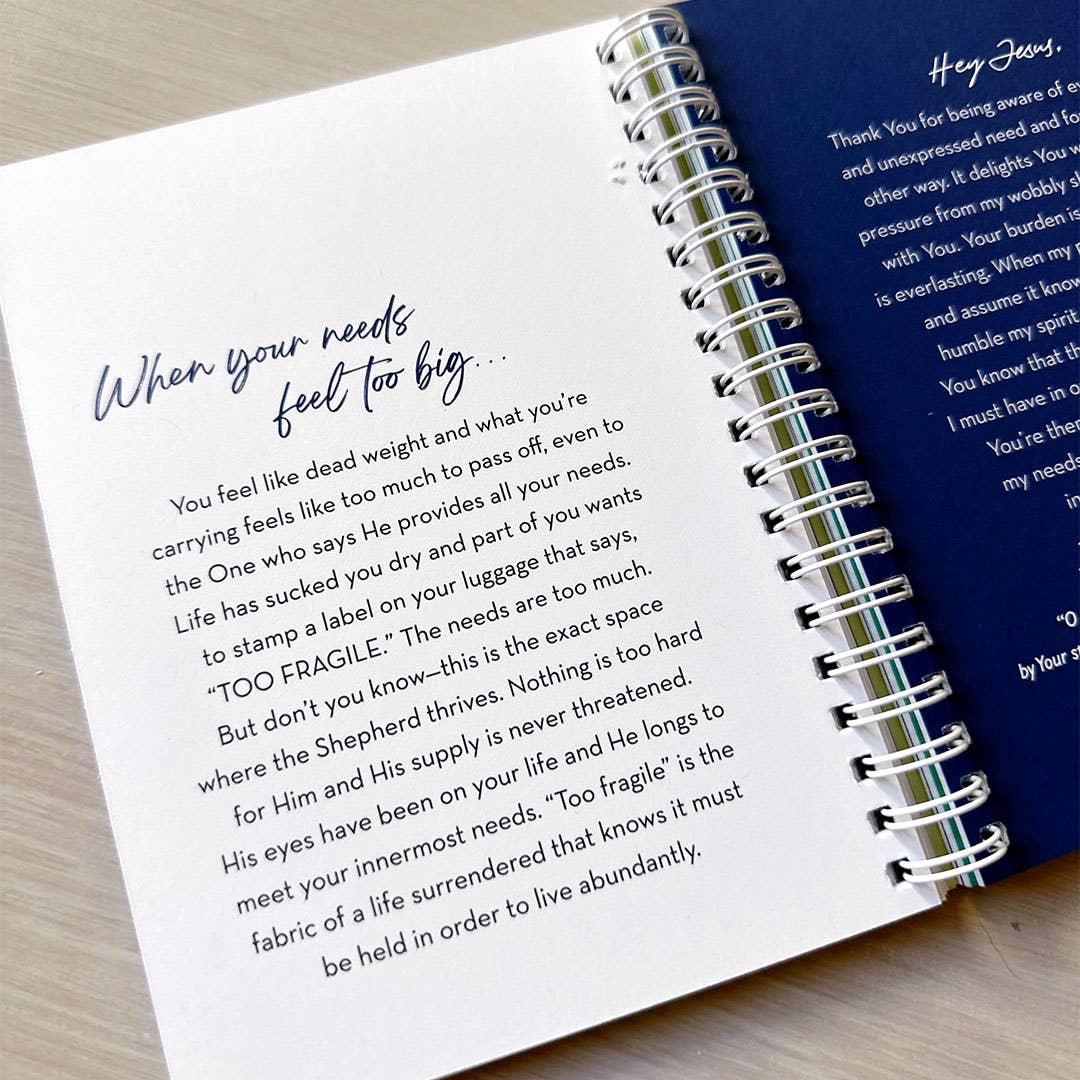 When your needs
feel too big...
You feel like dead weight and what you’re
carrying feels like too much to pass off, even to
the One who says He provides all your needs.
Life has sucked you dry and part of you wants
to stamp a label on your luggage that says,
“TOO FRAGILE.” The needs are too much.
But don’t you know—this is the exact space
where the Shepherd thrives. Nothing is too hard
for Him and His supply is never threatened.
His eyes have been on your life and He longs to
meet your innermost needs. “Too fragile” is the
fabric of a life surrendered that knows it must
be held in order to live abundantly.
Hey Jesus,
Thank You for being aware of
and unexpressed need and
other way. It delights You
pressure from my wobbly
with You. Your burden is
is everlasting. When my
and assume it
humble my spirit
You know that
I must have in
You’re
my needs
“O
by Your